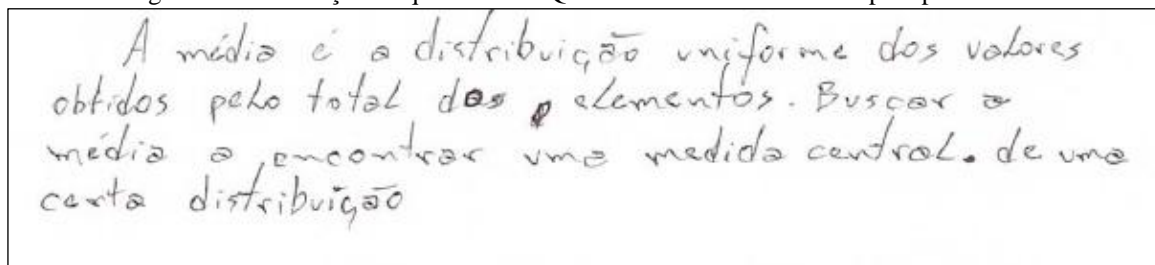 A média é a distribuição uniforme dos valores
obtidos pelo total dos elementos. Buscar a
média a encontrar uma medida central. de uma
certa distribuição